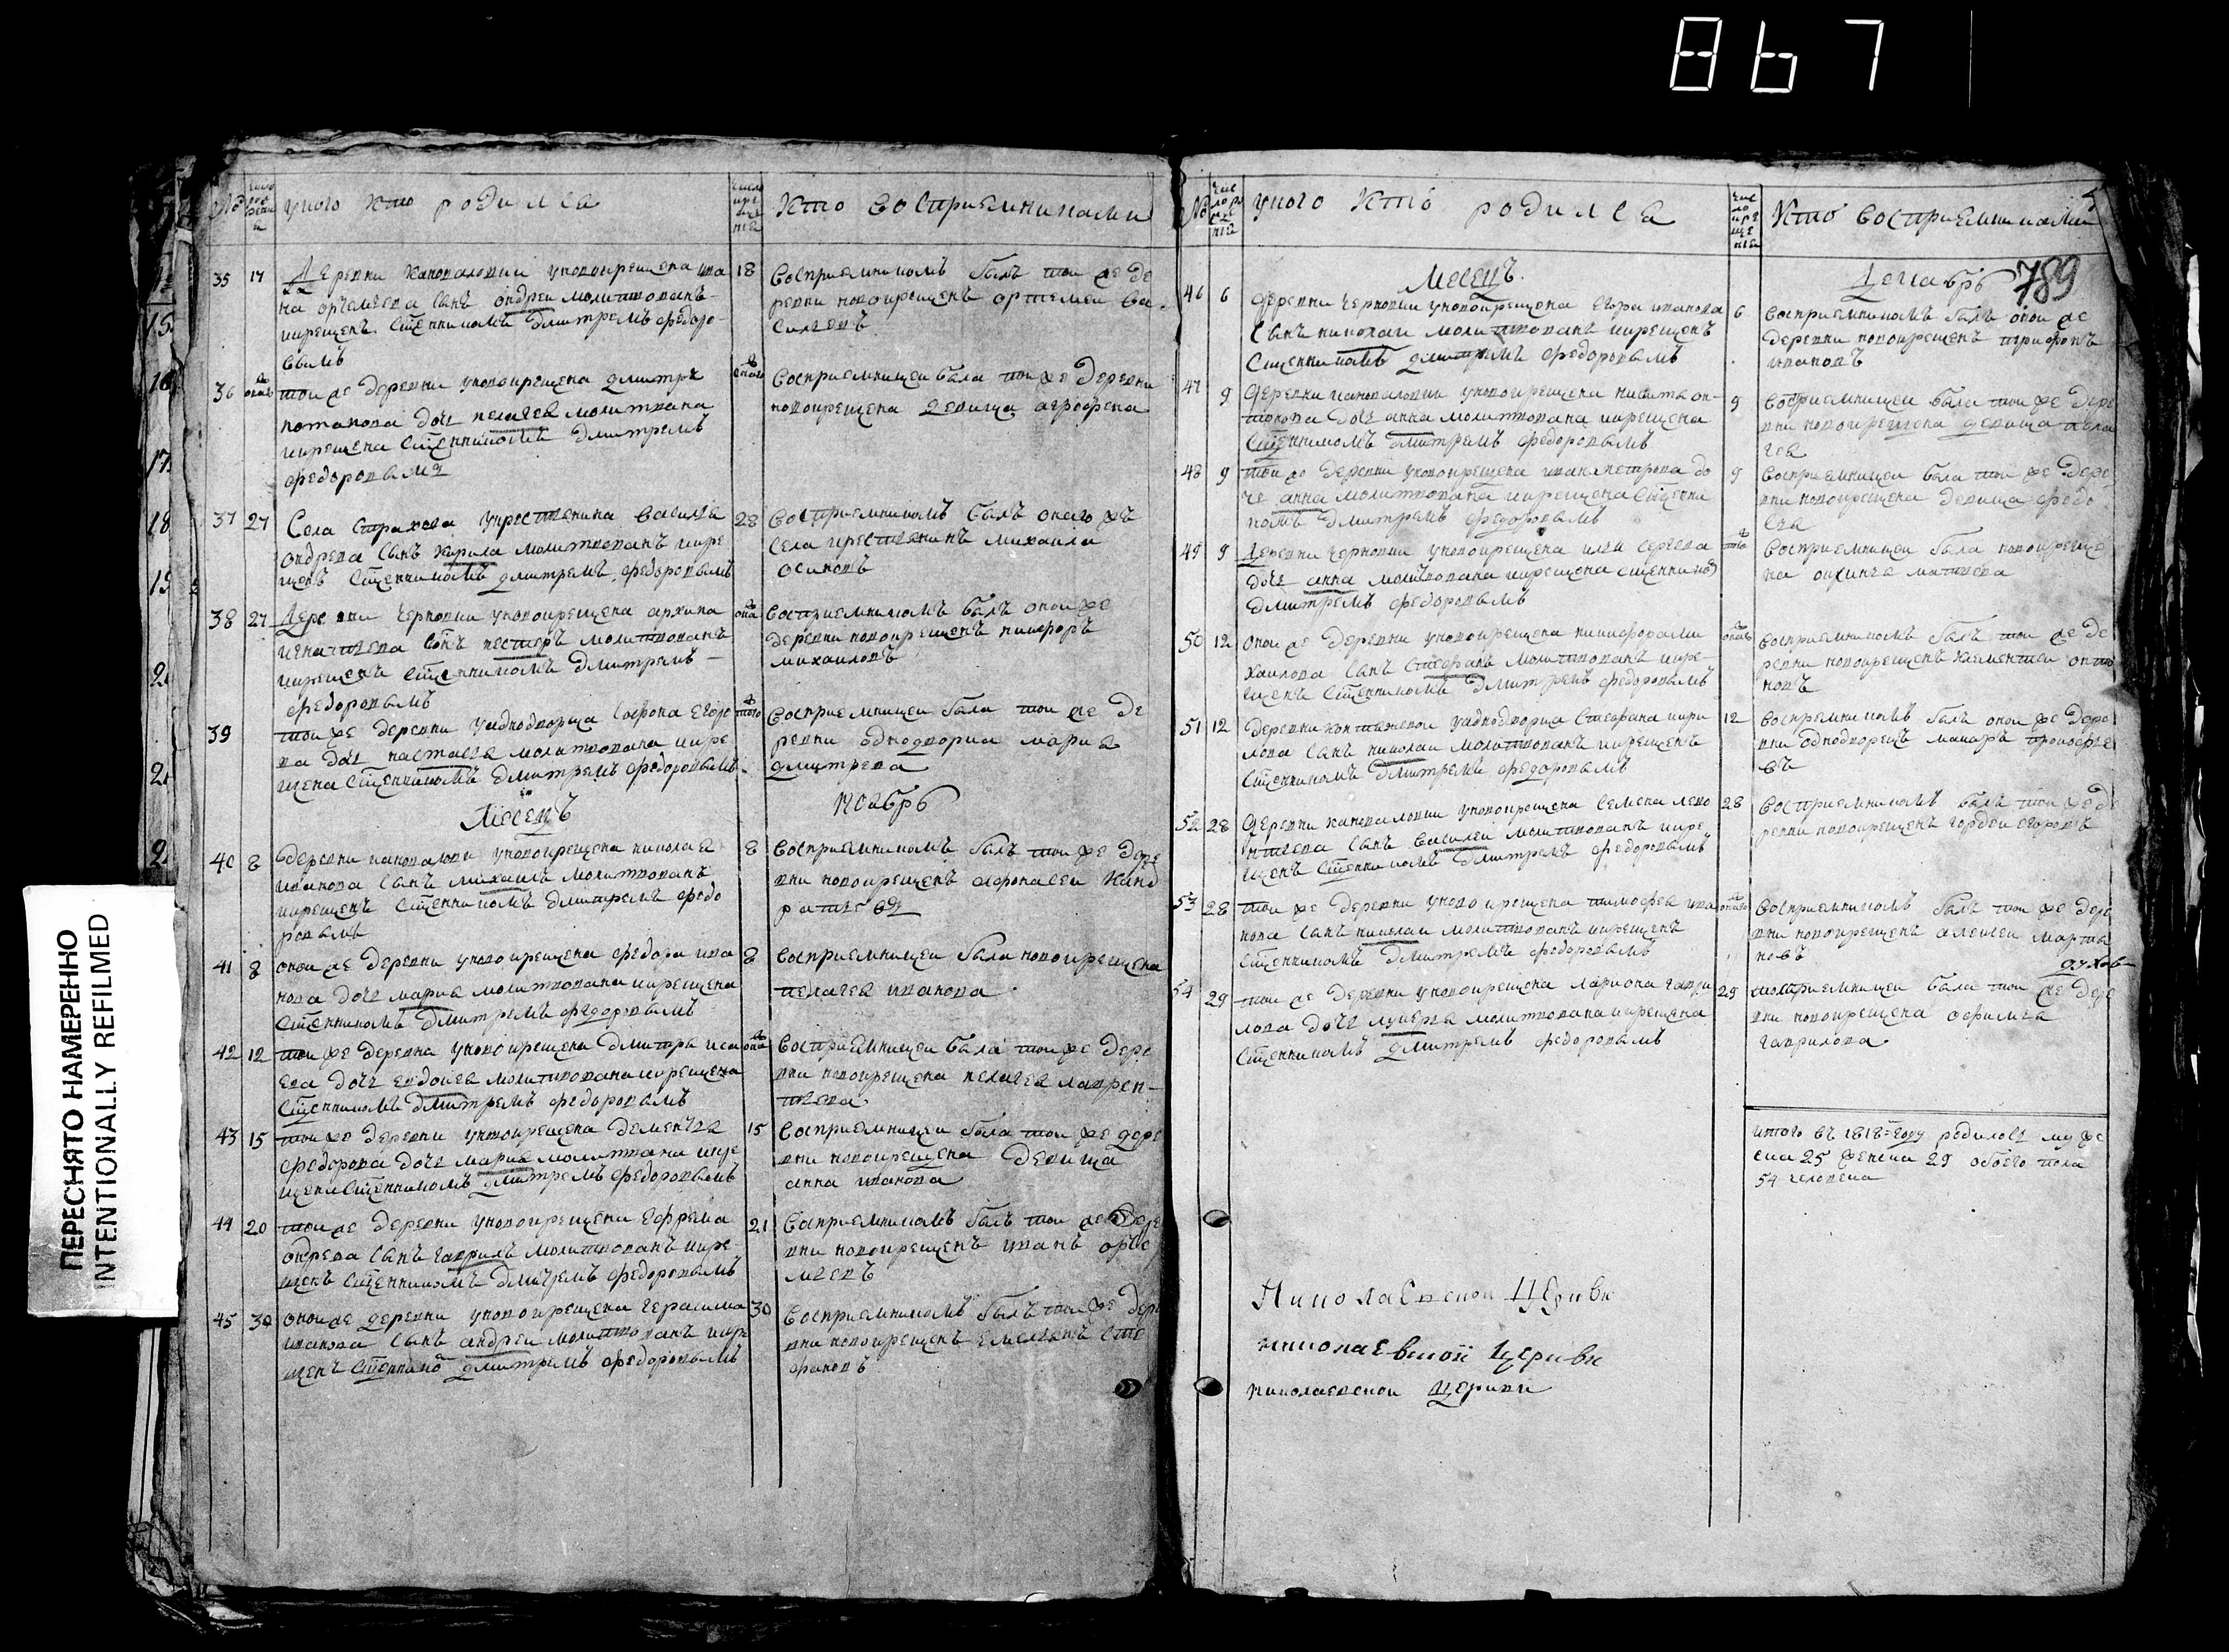 867
789
ПЕРЕСНЯТО НАМЕРЕННО
INTENTIONALLY REFILMED
№
число
у ково кто родился
кто восприемниками
35 17
Деревни Канаваловки у новокрещена ива
на сынъ ондреи молитвованъ
икрещенъ священникомъ дмитремъ федоро
вымъ
18
восприемникомъ былъ тои же де
ревни новокрещенъ ортемеи ва
сильевъ
36
тои же деревни у новокрещена дмитре
потапова дочь пелагея молитвана
икрещена священникомъ дмитремъ
федоровымъ
восприемницеи была тои же деревни
новокрещена девица агрофена
37 27
Села Страхова укрестьенина василья
ондрева сынъ Карила молитвованъ икре
щенъ священникомъ дмитремъ федоровымъ
28
восприемникомъ былъ оного же
села крестьенинъ михаила
осиповъ
38 27
Деревни Черновки у новокрещена архипа
игнатьева сынъ нестеръ молитвованъ
икрещенъ священникомъ дмитремъ
федоровымъ
восприемникомъ былъ онои же
деревни новокрещенъ никифоръ
михаиловъ
39
тои же деревни уаднодворца Софрона Егоро
ва дочь настасья молитвована икре
щена священникомъ дмитремъ федоровымъ
восприемницеи была тои же де
ревни однодворка мариа
дмитрева
Месецъ
ноябрь
40 8
деревни канаваловки у новокрещена николаа
иванова сынъ михаилъ молитвованъ
икрещенъ священникомъ дмитремъ федо
ровымъ
8
восприемникомъ былъ тои же дере
вни новокрещенъ афонасеи Канд
ратьевъ
41 8
онои же деревни у новокрещена федора ива
нова дочь мариа молитвована икрещена
священникомъ дмитремъ федоровымъ
8
восприемницеи была новокрещена
пелагея иванова
42 12
тои же деревни у новокрещена дмитра иса
ева дочь евдокея молитвована икрещена
священникомъ дмитремъ федоровымъ
восприемницеи была тои же дере
вни новокрещена пелагея лаврен
тьева
43 15
тои же деревни у новокрещена деменьтья
федорова дочь мариа молитвана икре
щена священникомъ дмитремъ федоровымъ
15
восприемницеи была тои же дере
вни новокрещена девица
анна иванова
44 20
тои же деревни у новокрещена Ефрема
ондрева сынъ гаврилъ молитвованъ икре
щенъ священникомъ дмитремъ федоровымъ
21
восприемникомъ былъ тои же дере
вни новокрещенъ иванъ орте
мьевъ
45 30
онои же деревни у новокрещена герасима
иванова сынъ андреи молитвованъ икре
щенъ священнико дмитремъ федоровымъ
30
восприемникомъ былъ тои же дере
вни новокрещенъ Емельенъ сте
фановъ
№
у ково кто родился
кто восприемниками
Месецъ
Декабрь
46 6
деревни Черновки у новокрещена Егора иванова
сынъ николаи молитвованъ икрещенъ
священникомъ дмитремъ федоровымъ
6
восприемникомъ былъ онои же
деревни новокрещенъ трифонъ
ивановъ
47 9
деревни канаваловки у новокрещена никита он
тонова дочь анна молитвована икрещена
священникомъ дмитремъ федоровымъ
9
восприемницеи была тои же дере
вни новокрещена девица
48 9
тои же деревни у новокрещена ивана петрова до
че анна молитвована икрещена священни
комъ дмитремъ федоровымъ
9
восприемницеи была тои же дере
вни новокрещена девица федо
сья
49 9
Деревни черновки у новокрещена ильи Сергева
дочь анна молитвована икрещена священико
дмитремъ федоровымъ
восприемницеи была новокреще
на матвева
50 12
онои же деревни у новокрещена никифора ми
хаилова сынъ Стефанъ молитвованъ икре
щенъ священникомъ дмитремъ федоровымъ
восприемникомъ былъ тои же де
ревни новокрещенъ Клементеи онто
новъ
51 12
деревни уаднодворца Стефана кири
лова сынъ николаи молитвованъ икрещенъ
священникомъ дмитремъ федоровымъ
12
восприемникомъ былъ онои же дере
вни однодворецъ макаръ прокофье
въ
52 28
деревни канаваловки у новокрещена Семена лево
нтьева сынъ василеи молитвованъ икре
щенъ священникомъ дмитремъ федоровымъ
28
восприемникомъ былъ тои же де
ревни новокрещенъ гордеи егоровъ
53 28
тои же деревни у новокрещена тимофея ива
нова сынъ николаи молитвованъ икрещенъ
священникомъ дмитремъ федоровымъ
восприемникомъ былъ тои же дере
вни новокрещенъ алексеи марты
новъ
54 29
тои же деревни у новокрещена лариона гаври
лова дочь лукерья молитвована икрещена
священникомъ дмитремъ федоровымъ
29
восприемницеи была тои же дере
вни новокрещена офимья
гаврилова
итого въ 1818 году родилось муже
ска 25 женска 29 обоего пола
54 человека
Николаевской Церкви
николаевской церкви
николаевской церкви